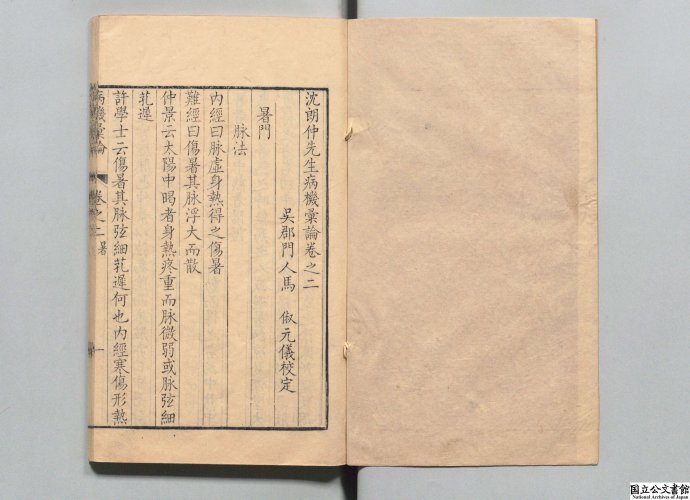 沈朗仲先生病機彙論卷之二
吳郡門人馬 俶元儀校定
暑門
脉法
內經曰脉虛身熱得之傷暑
難經曰傷暑其脉浮大而散
仲景云太陽中暍者身熱疼重而脉微弱或脉弦細
芤遲
許學士云傷暑其脉弦細芤遲何也內經寒傷形熱
病機彙論 卷之二 暑 一
国立公文書館
National Archives of Japan